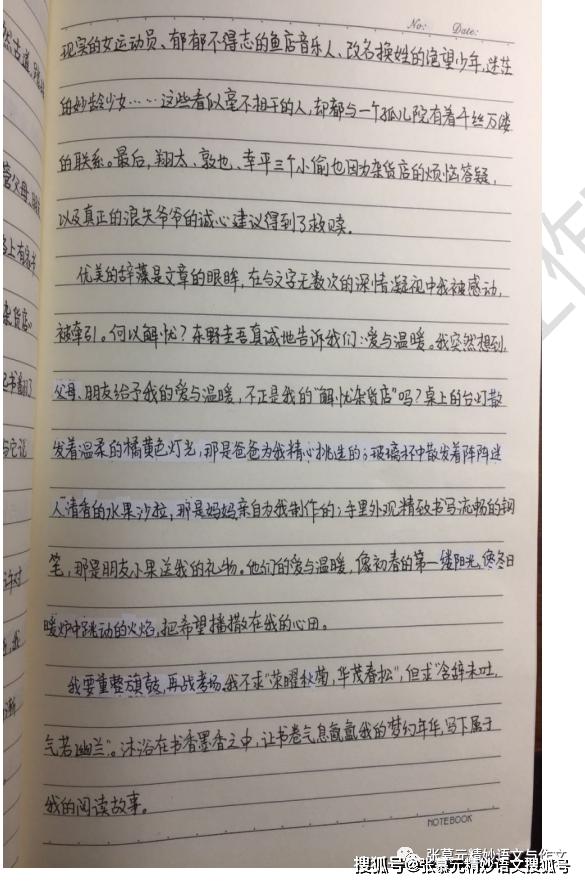 No: Date:
现实的女运动员、郁郁不得志的鱼店音乐人、改名换姓的绝望少年,迷茫
的妙龄少女……这些看似毫不相干的人,却都与一个孤儿院有着千丝万缕
的联系。最后,翔太、敦也、幸平三个小偷也因为杂货店的烦恼答疑,
以及真正的浪矢爷爷的诚心建议得到了救赎。
优美的辞藻是文章的眼眸,在与文字无数次的深情凝视中我被感动,
被牵引。何以解忧?东野圭吾真诚地告诉我们:爱与温暖。我突然想到,
父母、朋友给予我的爱与温暖,不正是我的"解忧杂货店"吗?桌上的台灯散
发着温柔的橘黄色灯光,那是爸爸为我精心挑选的;玻璃杯中散发着阵阵迷
人清香的水果沙拉,那是妈妈亲自为我制作的;手里外观精致书写流畅的钢
笔,那是朋友小果送我的礼物。他们的爱与温暖,像初春的第一缕阳光,像冬日
暖炉中跳动的火焰,把希望播撒在我的心田。
我要重整旗鼓,再战考场。我不求"荣曜秋菊,华茂春松",但求"含辞未吐,
气若幽兰"。沐浴在书香墨香之中,让书卷气息氤氲我的梦幻年华,写下属于
我的阅读故事。
NOTEBOOK
张慕元精妙语文与作文
搜狐号@张慕元精妙语文搜狐号